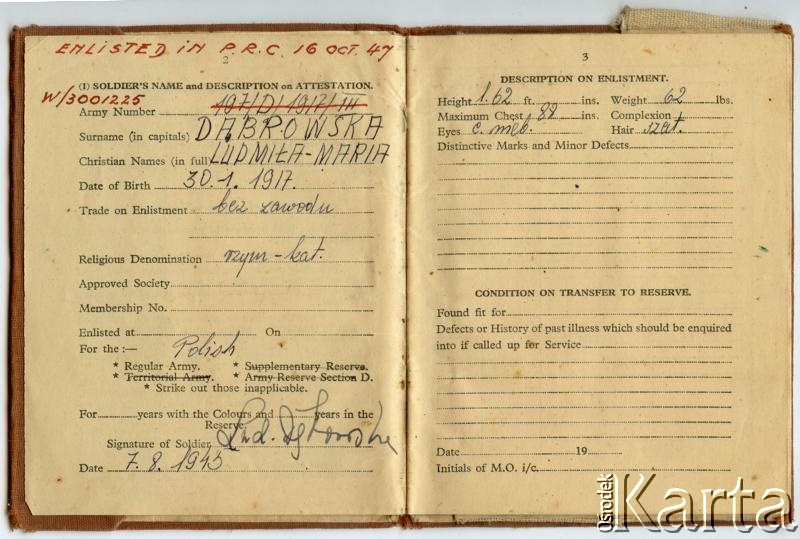 ENLISTED IN P.R.C. 16 OCT. 47
2
(1) SOLDIER'S NAME and DESCRIPTION on ATTESTATION.
W/3001225
Army Number 197/D/1917/III
Surname (in capitals) DĄBROWSKA
Christian Names (in full) LUDMIŁA-MARIA
Date of Birth 30.1.1917.
Trade on Enlistment bez zawodu
Religious Denomination rzym-kat.
Approved Society
Membership No.
Enlisted at On
For the :— Polish
* Regular Army. * Supplementary Reserve.
* Territorial Army. * Army Reserve Section D.
* Strike out those inapplicable.
For years with the Colours and years in the
Reserve.
Signature of Soldier
Date 7.8.1945
3
DESCRIPTION ON ENLISTMENT.
Height 1.62 ft. ins. Weight 62 lbs.
Maximum Chest 88 ins. Complexion
Eyes Hair szat.
Distinctive Marks and Minor Defects
CONDITION ON TRANSFER TO RESERVE.
Found fit for
Defects or History of past illness which should be enquired
into if called up for Service
Date 19
Initials of M.O. i/c.
Ośrodek Karta